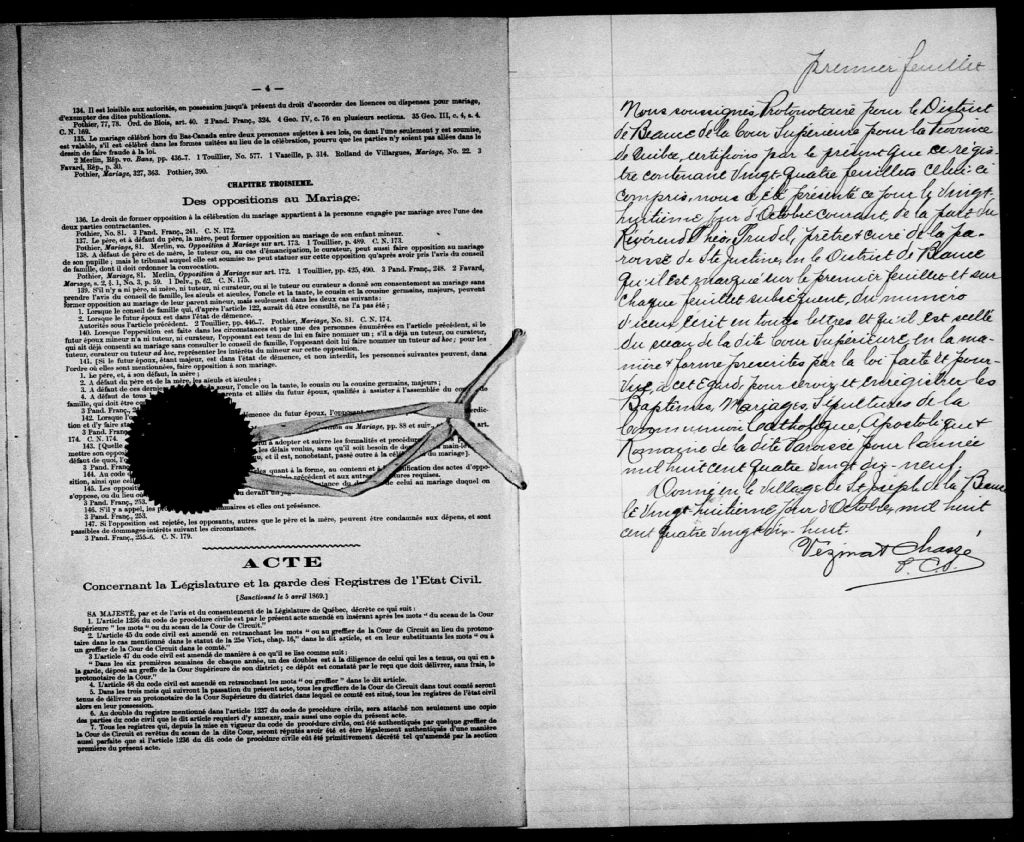 — 4 —
134. Il est loisible aux autorités, en possession jusqu'à présent du droit d'accorder des licences ou dispenses pour mariage,
d'exempter des dites publications.
Pothier, 77, 78. Ord. de Blois, art. 40. 2 Pand. Franç., 324. 4 Geo. IV, c. 76 en plusieurs sections. 35 Geo. III, c. 4, s. 4.
C. N. 169.
135. Le mariage célébré hors du Bas-Canada entre deux personnes sujettes à ses lois, ou dont l'une seulement y est soumise,
est valable, s'il est célébré dans les formes usitées au lieu de la célébration, pourvu que les parties n'y soient pas allées dans le
dessin de faire fraude à la loi.
2 Merlin, Rép. vo. Bans, pp. 436-7. 1 Touillier, No. 577. 1 Vazeille, p. 314. Rolland de Villargues, Mariage, No. 22. 3
Favard, Rép., p. 30.
Pothier, Mariage, 327, 363. Pothier, 390.
CHAPITRE TROISIEME.
Des oppositions au Mariage.
136. Le droit de former opposition à la célébration du mariage appartient à la personne engagée par mariage avec l'une des
deux parties contractantes.
Pothier, No. 81. 3 Pand. Franç., 241. C. N. 172.
137. Le père, et à défaut du père, la mère, peut former opposition au mariage de son enfant mineur.
Pothier, Mariage, 81. Merlin, vo. Opposition à Mariage sur art. 173. 1 Touillier, p. 489. C. N. 173.
138. A défaut de père et de mère, le tuteur ou, au cas d'émancipation, le curateur, peut aussi faire opposition au mariage
de son pupille; mais le tribunal auquel elle est soumise ne peut statuer sur cette opposition qu'après avoir pris l'avis du conseil
de famille, dont il doit ordonner la convocation.
Pothier, Mariage, 81. Merlin, Opposition à Mariage sur art. 172. 1 Touillier, pp. 425, 490. 3 Pand. Franç., 248. 2 Favard,
Mariage, s. 2, § 1, No. 3, p. 59. 1 Delv., p. 62. C. N. 175.
139. S'il n'y a ni père, ni mère, ni tuteur, ni curateur, ou si le tuteur ou curateur a donné son consentement au mariage sans
prendre l'avis du conseil de famille, les aïeuls et aïeules, l'oncle et la tante, le cousin et la cousine germains, majeurs, peuvent
former opposition au mariage de leur parent mineur, mais seulement dans les deux cas suivants:
1. Lorsque le conseil de famille qui, d'après l'article 122, aurait dû être consulté, ne l'a pas été;
2. Lorsque le futur époux est dans l'état de démence.
Autorités sous l'article précédent. 2 Touillier, pp. 446-7. Pothier, Mariage, No. 81. C. N. 174.
140. Lorsque l'opposition est faite dans les circonstances et par une des personnes énumérées en l'article précédent, si le
futur époux mineur n'a ni tuteur, ni curateur, l'opposant est tenu de lui en faire nommer un; s'il a déjà un tuteur, ou curateur,
qui ait déjà consenti au mariage sans consulter le conseil de famille, l'opposant doit lui faire nommer un tuteur ad hoc; pour les
tuteur, curateur ou tuteur ad hoc, représenter les intérêts du mineur sur cette opposition.
141. [Si le futur époux, étant majeur, est dans l'état de démence, et non interdit, les personnes suivantes peuvent, dans
l'ordre où elles sont mentionnées, faire opposition à son mariage.
1. Le père, et, à son défaut, la mère;
2. A défaut du père et de la mère, les aïeuls et aïeules;
3. A défaut de ces dernie sœur, l'oncle ou la tante, le cousin ou la cousine germains, majeurs;
4. A défaut de tous rents et alliés du futur époux, qualifiés à assister à l'assemblée du con de
famille, qui doit être co
3 Pand. Franç., 24
142. Lorsque l'o mence du futur époux, l'opposant interdic-
tion et d'y faire stat
3 Pand. Franç au Mariage, pp. 88 et suiv. art.
174. C. N. 174.
143. [Quelle n à adopter et suivre les formalités et procédure dans le
mettre son opposit les délais voulus, sans qu'il soit besoin de de
défaut de quoi, l'o et il est, nonobstant, passé outre à la célébration du mariage].
3 Pand. Franç
144. Au code s quant à la forme, au contenu et à ification des actes d'oppo-
sition, ainsi que ce précédent et aux autres res requises.
145. Les opposit tance du de celui au mariage duquel on
s'oppose, ou du lieu ou devant un ju
3 Pand. Franç., 253.
146. S'il y a appel, les pr mmaires et elles ont préséance.
3 Pand. Franç., 253.
147. Si l'opposition est rejetée, les opposants, autres que le père et la mère, peuvent être condamnés aux dépens, et sont
passibles de dommages-intérêts suivant les circonstances.
3 Pand. Franç., 255-6. C. N. 179.
ACTE
Concernant la Législature et la garde des Registres de l'Etat Civil.
[Sanctionné le 5 avril 1869.]
SA MAJESTÉ, par et de l'avis et du consentement de la Législature de Québec, décrète ce qui suit:
1. L'article 1236 du code de procédure civile est par le présent acte amendé en insérant après les mots " du sceau de la Cour
Supérieure " les mots " ou du sceau de la Cour de Circuit."
2. L'article 45 du code civil est amendé en retranchant les mots " ou au greffier de la Cour de Circuit au lieu du protono-
taire dans le cas mentionné dans le statut de la 25e Vict., chap. 16," dans le dit article, et en leur substituant les mots " ou à
un greffier de la Cour de Circuit dans le comté."
3 L'article 47 du code civil est amendé de manière à ce qu'il se lise comme suit:
" Dans les six premières semaines de chaque année, un des doubles est à la diligence de celui qui les a tenus, ou qui en a
la garde, déposé au greffe de la Cour Supérieure de son district; ce dépôt est constaté par le reçu que doit délivrer, sans frais, le
protonotaire de la Cour."
4. L'article 48 du code civil est amendé en retranchant les mots " ou greffier " dans le dit article.
5. Dans les trois mois qui suivront la passation du présent acte, tous les greffiers de la Cour de Circuit dans tout comté seront
tenus de délivrer au protonotaire de la Cour Supérieure du district dans lequel ce comté est situé, tous les registres de l'état civil
alors en leur possession.
6. Au double du registre mentionné dans l'article 1237 du code de procédure civile, sera attaché non seulement une copie
des parties du code civil que le dit article requiert d'y annexer, mais aussi une copie du présent acte.
7. Tous les registres qui, depuis la mise en vigueur du code de procédure civile, ont été authentiqués par quelque greffier de
la Cour de Circuit et revêtus du sceau de la dite Cour, seront réputés avoir été et être légalement authentiqués d'une manière
aussi parfaite que si l'article 1236 du dit code de procédure civile eût été primitivement décrété tel qu'amendé par la section
première du présent acte.
premier feuillet
Nous soussignés, Protonotaire pour le District
de Beauce de la Cour Supérieure pour la Province
de Québec, certifions par le présent que ce régis-
tre contenant Vingt-quatre feuillets celui-ci
compris, nous a été présenté ce jour le vingt
huitième jour d'Octobre Courant, de la part du
Révérend Théo. Trudel, prêtre & curé de la pa-
roisse de Ste Justine, en le District de Beauce
qu'il est marqué sur le premier feuillet et sur
chaque feuillet subséquent, du numéro
d'iceux écrit en toutes lettres et qu'il est scellé
du sceau de la dite Cour Supérieure, en la ma-
nière & forme prescrites par la loi faite et pour-
vue, à cet égard, pour servir et enregistrer les
Baptêmes, Mariages, Sépultures de la
Communion Catholique, Apostolique &
Romaine de la dite Paroisse pour l'année
mil huit cent quatre vingt dix-neuf.
Donné en le village de St Joseph de la Beauce
le vingt huitième jour d'Octobre, mil huit
cent quatre vingt dix-huit.
Vézina & Chassé
P. C. S.